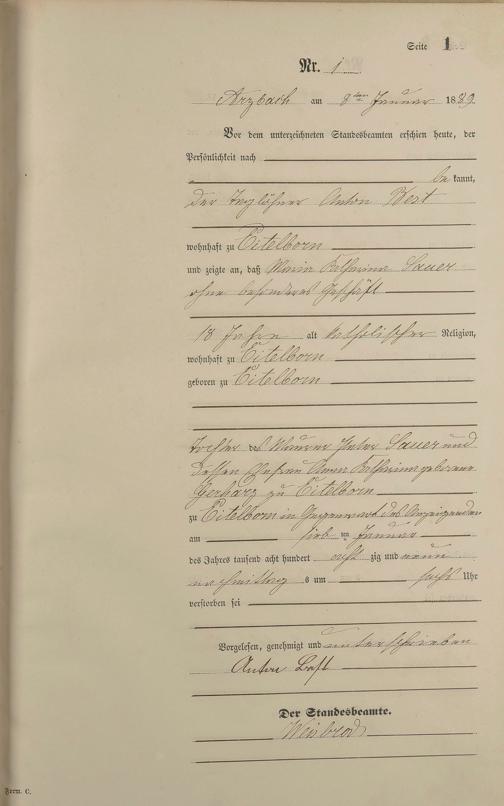 Seite 1
Nr. 1
Arzbach am 8ten Januar 1889
Vor dem unterzeichneten Standesbeamten erschien heute, der
Persönlichkeit nach
be kannt,
der Taglöhner Anton
wohnhaft zu Eitelborn
und zeigte an, daß Maria Katharina Sauer
ohne besonderes Geschäft
18 Jahre alt katholischer Religion,
wohnhaft zu Eitelborn
geboren zu Eitelborn
Tochter des Maurer Peter Sauer und
dessen Ehefrau Anna Katharina geborene
Gerharz zu Eitelborn
zu Eitelborn in Gegenwart des Anzeigenden
am sieb ten Januar
des Jahres tausend acht hundert acht zig und neun
nachmittag s um sechs Uhr
verstorben sei
Vorgelesen, genehmigt und unterschrieben
Anton
Der Standesbeamte.
Weisbrod
Form. C.